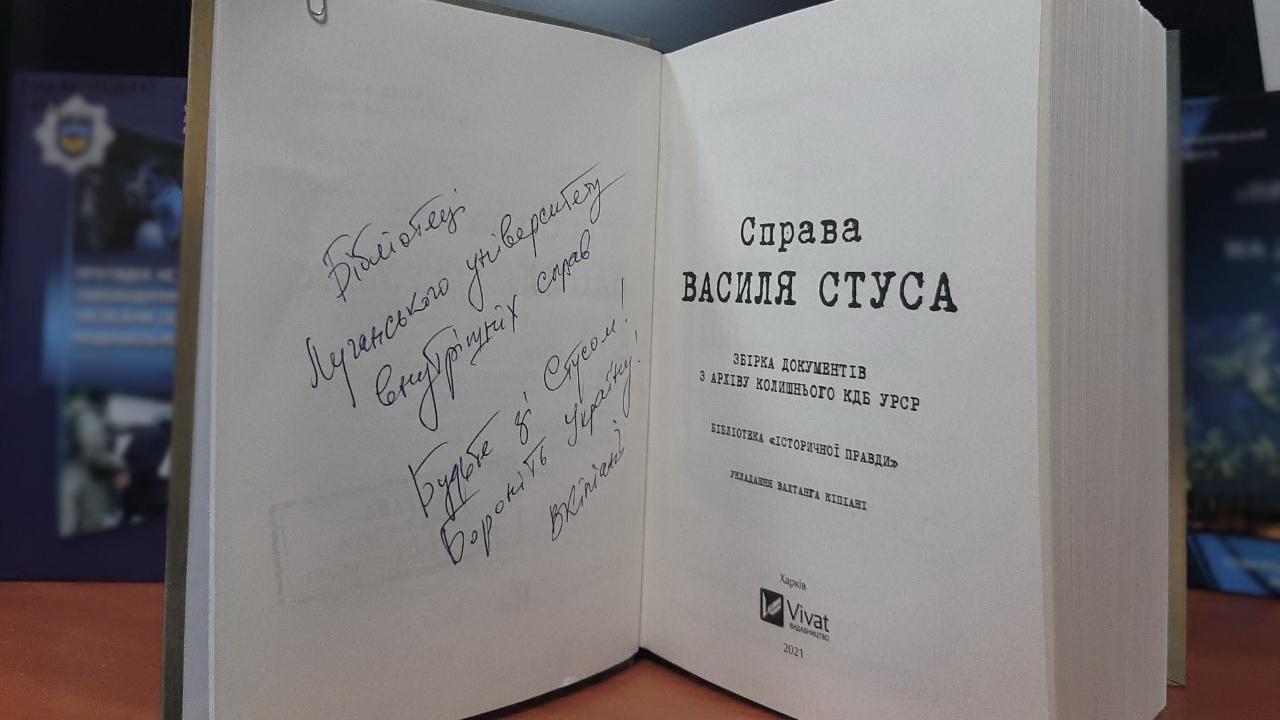 Бібліотеці
Луганського університету
внутрішніх справ
Будьте зі Стусом!
Бороніть Україну!
ВКіпіані
Справа
ВАСИЛЯ СТУСА
ЗБІРКА ДОКУМЕНТІВ
З АРХІВУ КОЛИШНЬОГО КДБ УРСР
БІБЛІОТЕКА «ІСТОРИЧНОЇ ПРАВДИ»
УКЛАДАННЯ ВАХТАНГА КІПІАНІ
Харків
Vivat
ВИДАВНИЦТВО
2021